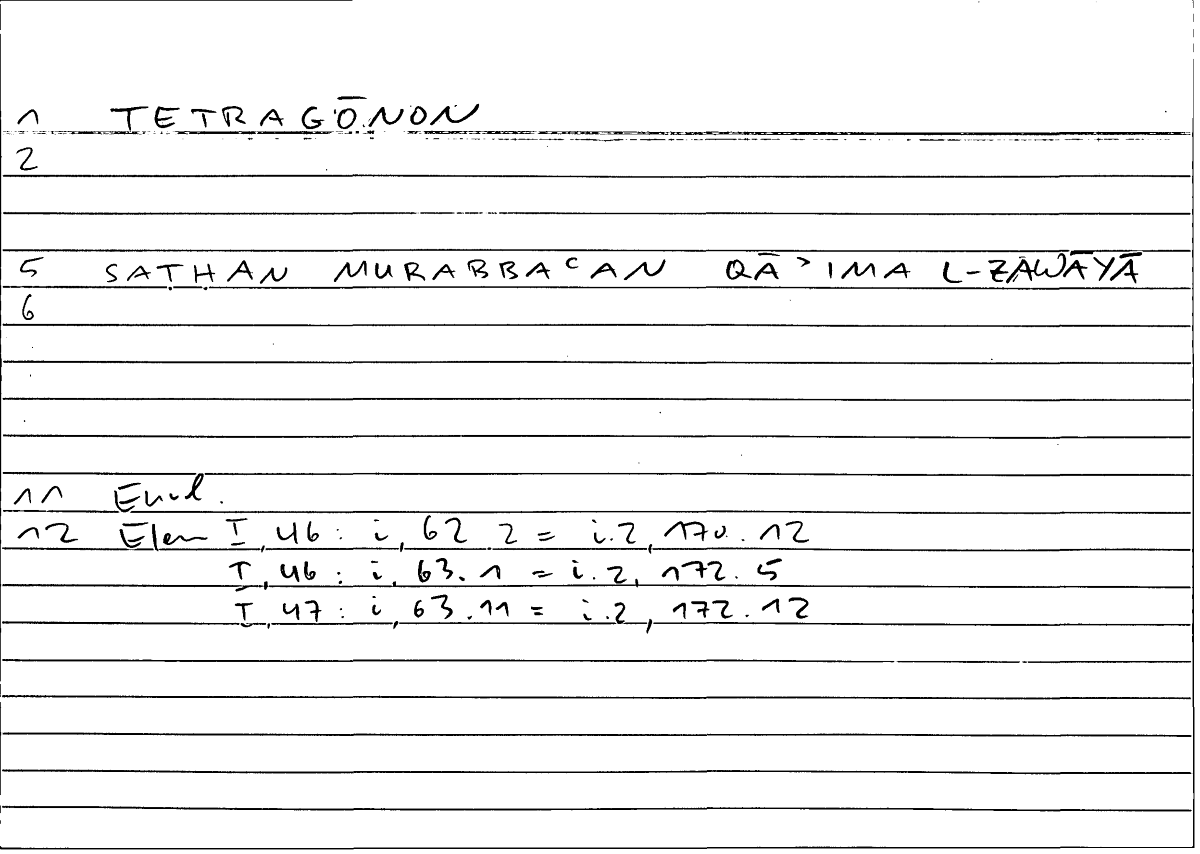 1 TETRAGŌNON
2
5 SAṬḤAN MURABBAʿAN QĀʾIMA L-ZAWĀYĀ
6
11 Eucl.
12 Elem I, 46 : i, 62 . 2 = i.2, 170.12
I, 46 : i, 63.1 = i.2, 172.5
I, 47 : i, 63.11 = i.2, 172.12